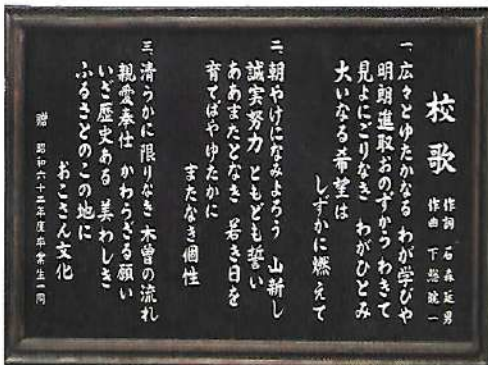 校歌
作詞 石森延男
作曲 下総皖一
一、広々とゆたかなる わが学びや
明朗進取おのずからわきて
見よにごりなき わがひとみ
大いなる希望は
しずかに燃えて
二、朝やけになみよろう 山新し
誠実努力 ともども誓い
ああまたとなき 若き日を
育てばやゆたかに
またなき個性
三、清らかに限りなき 木曽の流れ
親愛奉仕 かわらざる願い
いざ歴史ある 美わしき
ふるさとのこの地に
おこさん文化
贈 昭和六十二年度卒業生一同